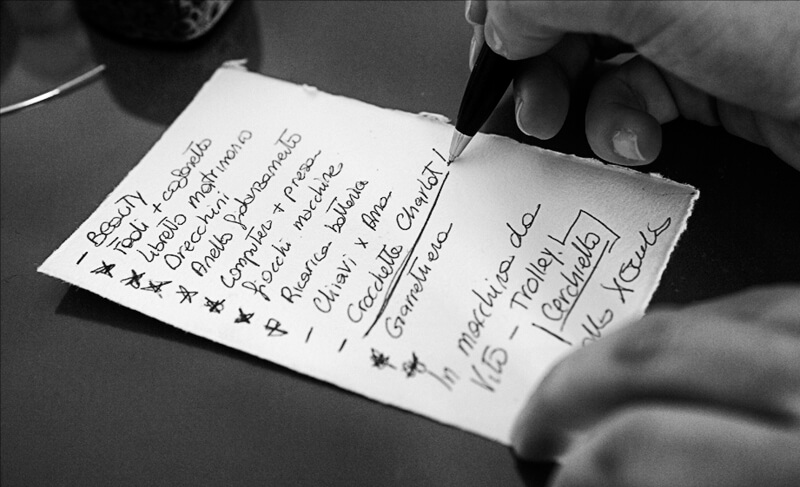 - BEAUTY
Tacchi + cofanetto
Libretto matrimonio
Orecchini
Anello fidanzamento
Computer + presa
fiocchi macchine
Ricarica batteria
- Chiavi x Ana
- Crocchette Charlot!
Giarrettiera
In macchina da
Vito - Trolley!
Cerchiello